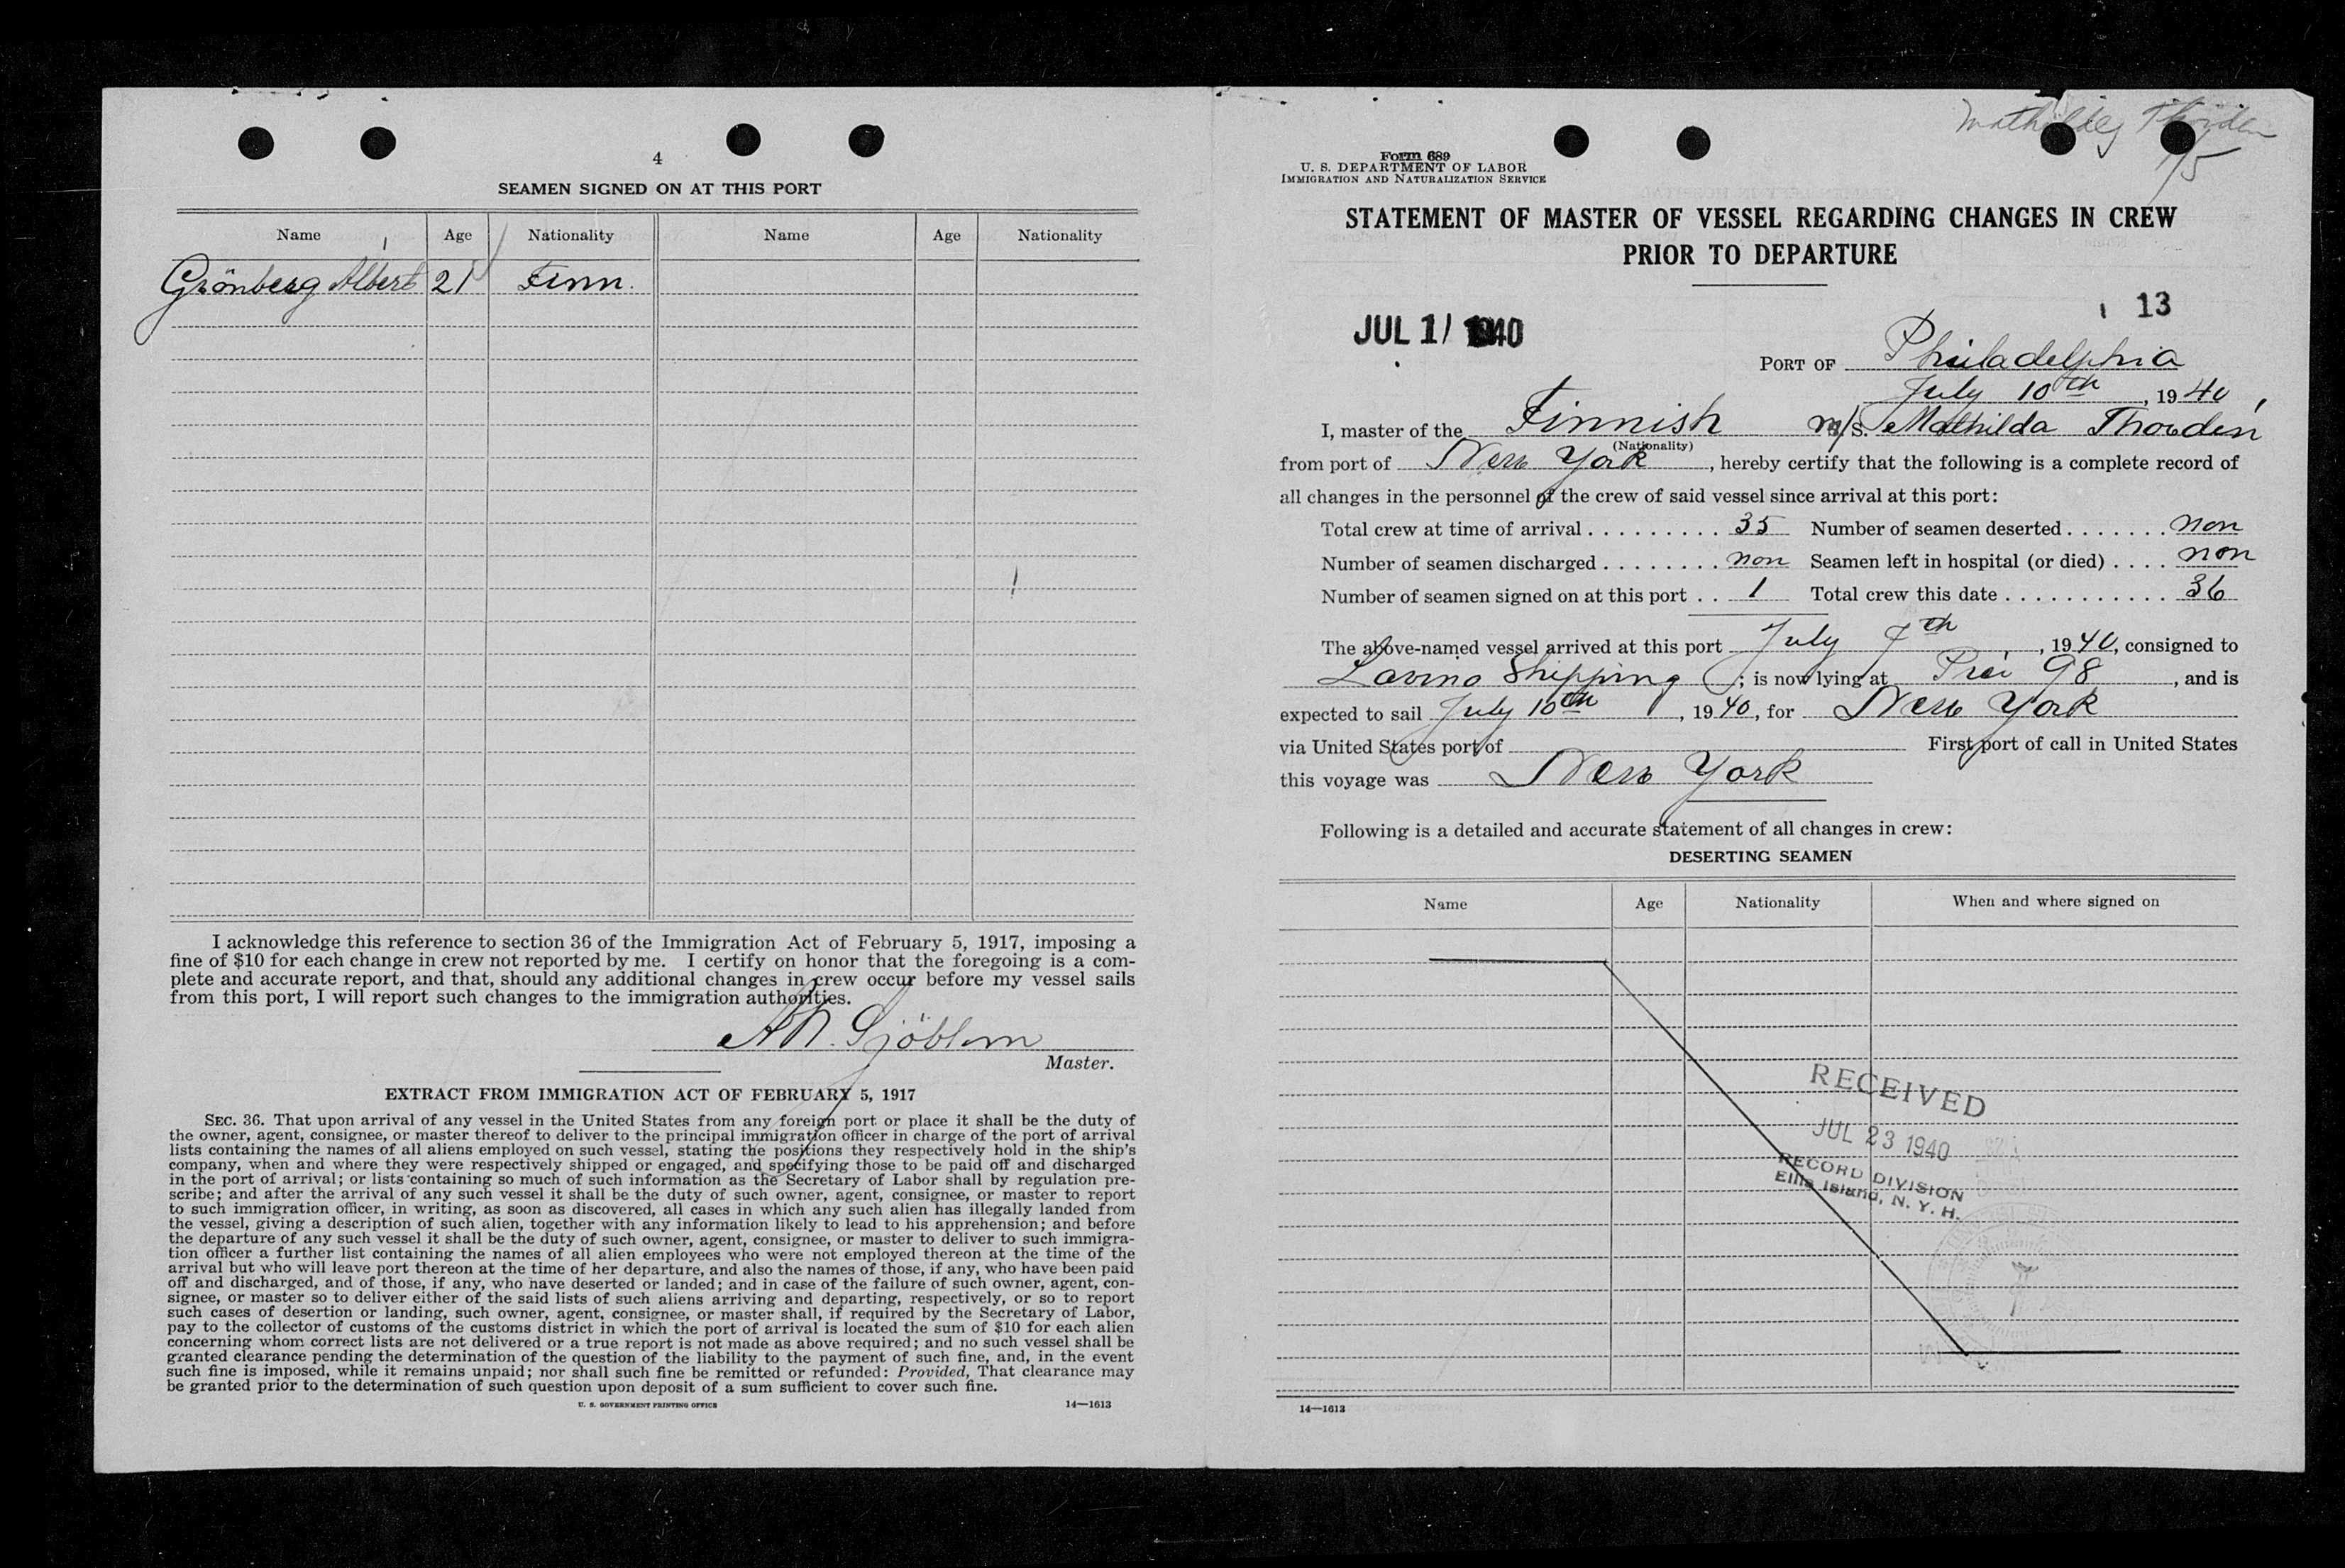 4
SEAMEN SIGNED ON AT THIS PORT
Name Age Nationality Name Age Nationality
Grönberg Albert 21 Finn.
I acknowledge this reference to section 36 of the Immigration Act of February 5, 1917, imposing a
fine of $10 for each change in crew not reported by me. I certify on honor that the foregoing is a com-
plete and accurate report, and that, should any additional changes in crew occur before my vessel sails
from this port, I will report such changes to the immigration authorities.
Sjöblom
Master.
EXTRACT FROM IMMIGRATION ACT OF FEBRUARY 5, 1917
SEC. 36. That upon arrival of any vessel in the United States from any foreign port or place it shall be the duty of
the owner, agent, consignee, or master thereof to deliver to the principal immigration officer in charge of the port of arrival
lists containing the names of all aliens employed on such vessel, stating the positions they respectively hold in the ship's
company, when and where they were respectively shipped or engaged, and specifying those to be paid off and discharged
in the port of arrival; or lists containing so much of such information as the Secretary of Labor shall by regulation pre-
scribe; and after the arrival of any such vessel it shall be the duty of such owner, agent, consignee, or master to report
to such immigration officer, in writing, as soon as discovered, all cases in which any such alien has illegally landed from
the vessel, giving a description of such alien, together with any information likely to lead to his apprehension; and before
the departure of any such vessel it shall be the duty of such owner, agent, consignee, or master to deliver to such immigra-
tion officer a further list containing the names of all alien employees who were not employed thereon at the time of the
arrival but who will leave port thereon at the time of her departure, and also the names of those, if any, who have been paid
off and discharged, and of those, if any, who have deserted or landed; and in case of the failure of such owner, agent, con-
signee, or master so to deliver either of the said lists of such aliens arriving and departing, respectively, or so to report
such cases of desertion or landing, such owner, agent, consignee, or master shall, if required by the Secretary of Labor,
pay to the collector of customs of the customs district in which the port of arrival is located the sum of $10 for each alien
concerning whom correct lists are not delivered or a true report is not made as above required; and no such vessel shall be
granted clearance pending the determination of the question of the liability to the payment of such fine, and, in the event
such fine is imposed, while it remains unpaid; nor shall such fine be remitted or refunded: Provided, That clearance may
be granted prior to the determination of such question upon deposit of a sum sufficient to cover such fine.
U. S. GOVERNMENT PRINTING OFFICE 14—1613
Form 689
U. S. DEPARTMENT OF LABOR
IMMIGRATION AND NATURALIZATION SERVICE
STATEMENT OF MASTER OF VESSEL REGARDING CHANGES IN CREW
PRIOR TO DEPARTURE
13
JUL 11 1940
PORT OF Philadelphia
July 10th, 1940,
I, master of the Finnish m/s. Mathilda Thordén
(Nationality)
from port of New York, hereby certify that the following is a complete record of
all changes in the personnel of the crew of said vessel since arrival at this port:
Total crew at time of arrival 35 Number of seamen deserted non
Number of seamen discharged non Seamen left in hospital (or died) non
Number of seamen signed on at this port 1 Total crew this date 36
The above-named vessel arrived at this port July 9th, 1940, consigned to
Lavino Shipping; is now lying at Prei 98, and is
expected to sail July 10th, 1940, for New York
via United States port of First port of call in United States
this voyage was New York
Following is a detailed and accurate statement of all changes in crew:
DESERTING SEAMEN
Name Age Nationality When and where signed on
RECEIVED
JUL 23 1940
RECORD DIVISION
Ellis Island, N. Y. H.
14—1613